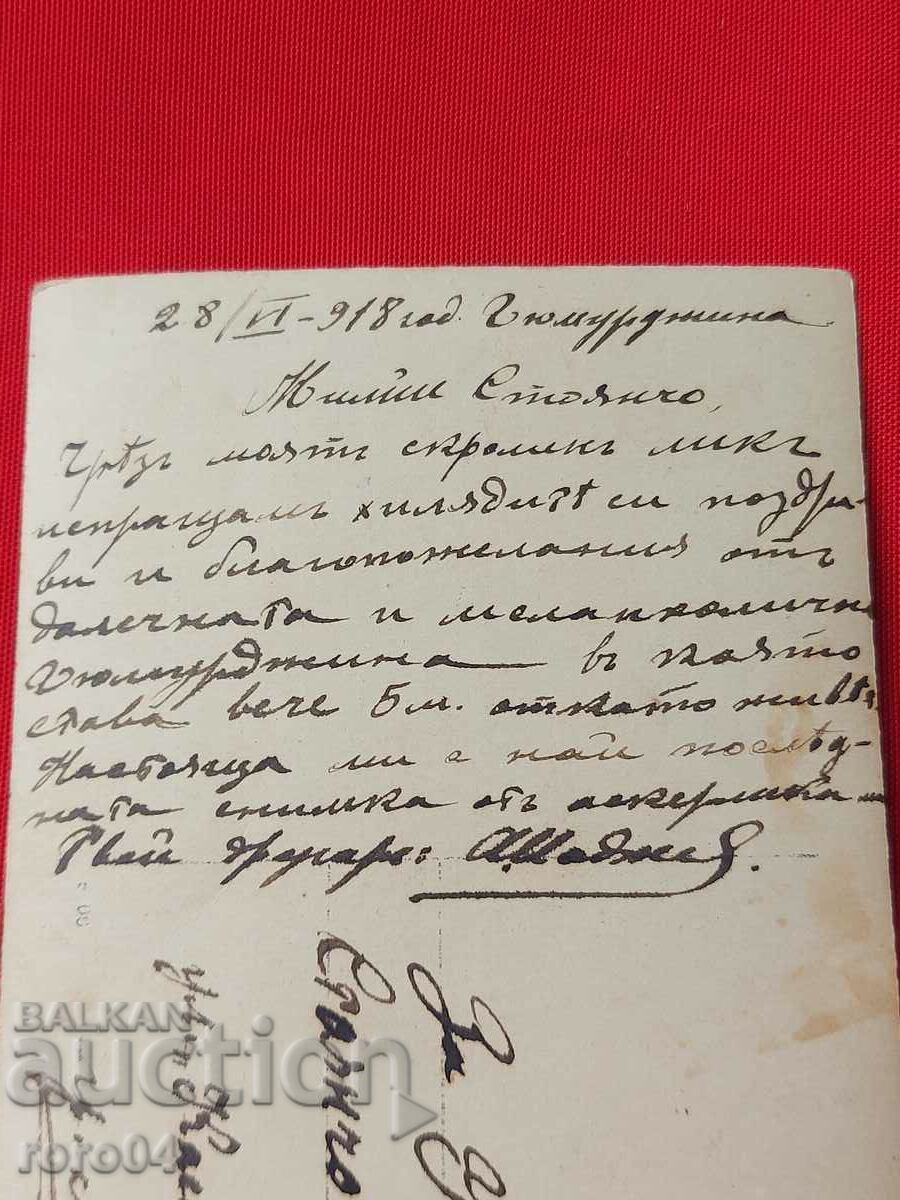 28/VI - 918 год. Гюмурджина
Милий Стоянчо,
Чрѣзъ моятъ скроменъ ликъ
испращамъ хилядитѣ си поздра-
ви и благопожелания отъ
далечната и меланхолична
Гюмурджина въ която
става вече 5 м. откато живѣя.
Настояща ми е най послѣд-
ната снимка отъ аскерлика
Твой другарь:
За
BALKAN
auction
roro04